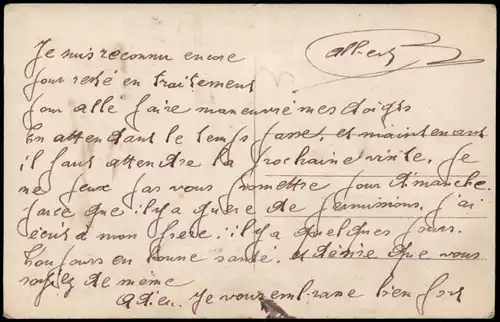 Albert
Je suis reconnu encore
pour resté en traitement
pour allé faire manœuvré mes doigts
En attendant le temps passe, et maintenant
il faut attendre la prochaine visite. Je
ne peux pas vous promettre pour dimanche
parce que il y a guère de permissions. j'ai
écrit a mon frere; il y a quelques jours.
toujours en bonne santé, et désire que vous
soyez de même
Adieu. Je vous embrasse bien fort